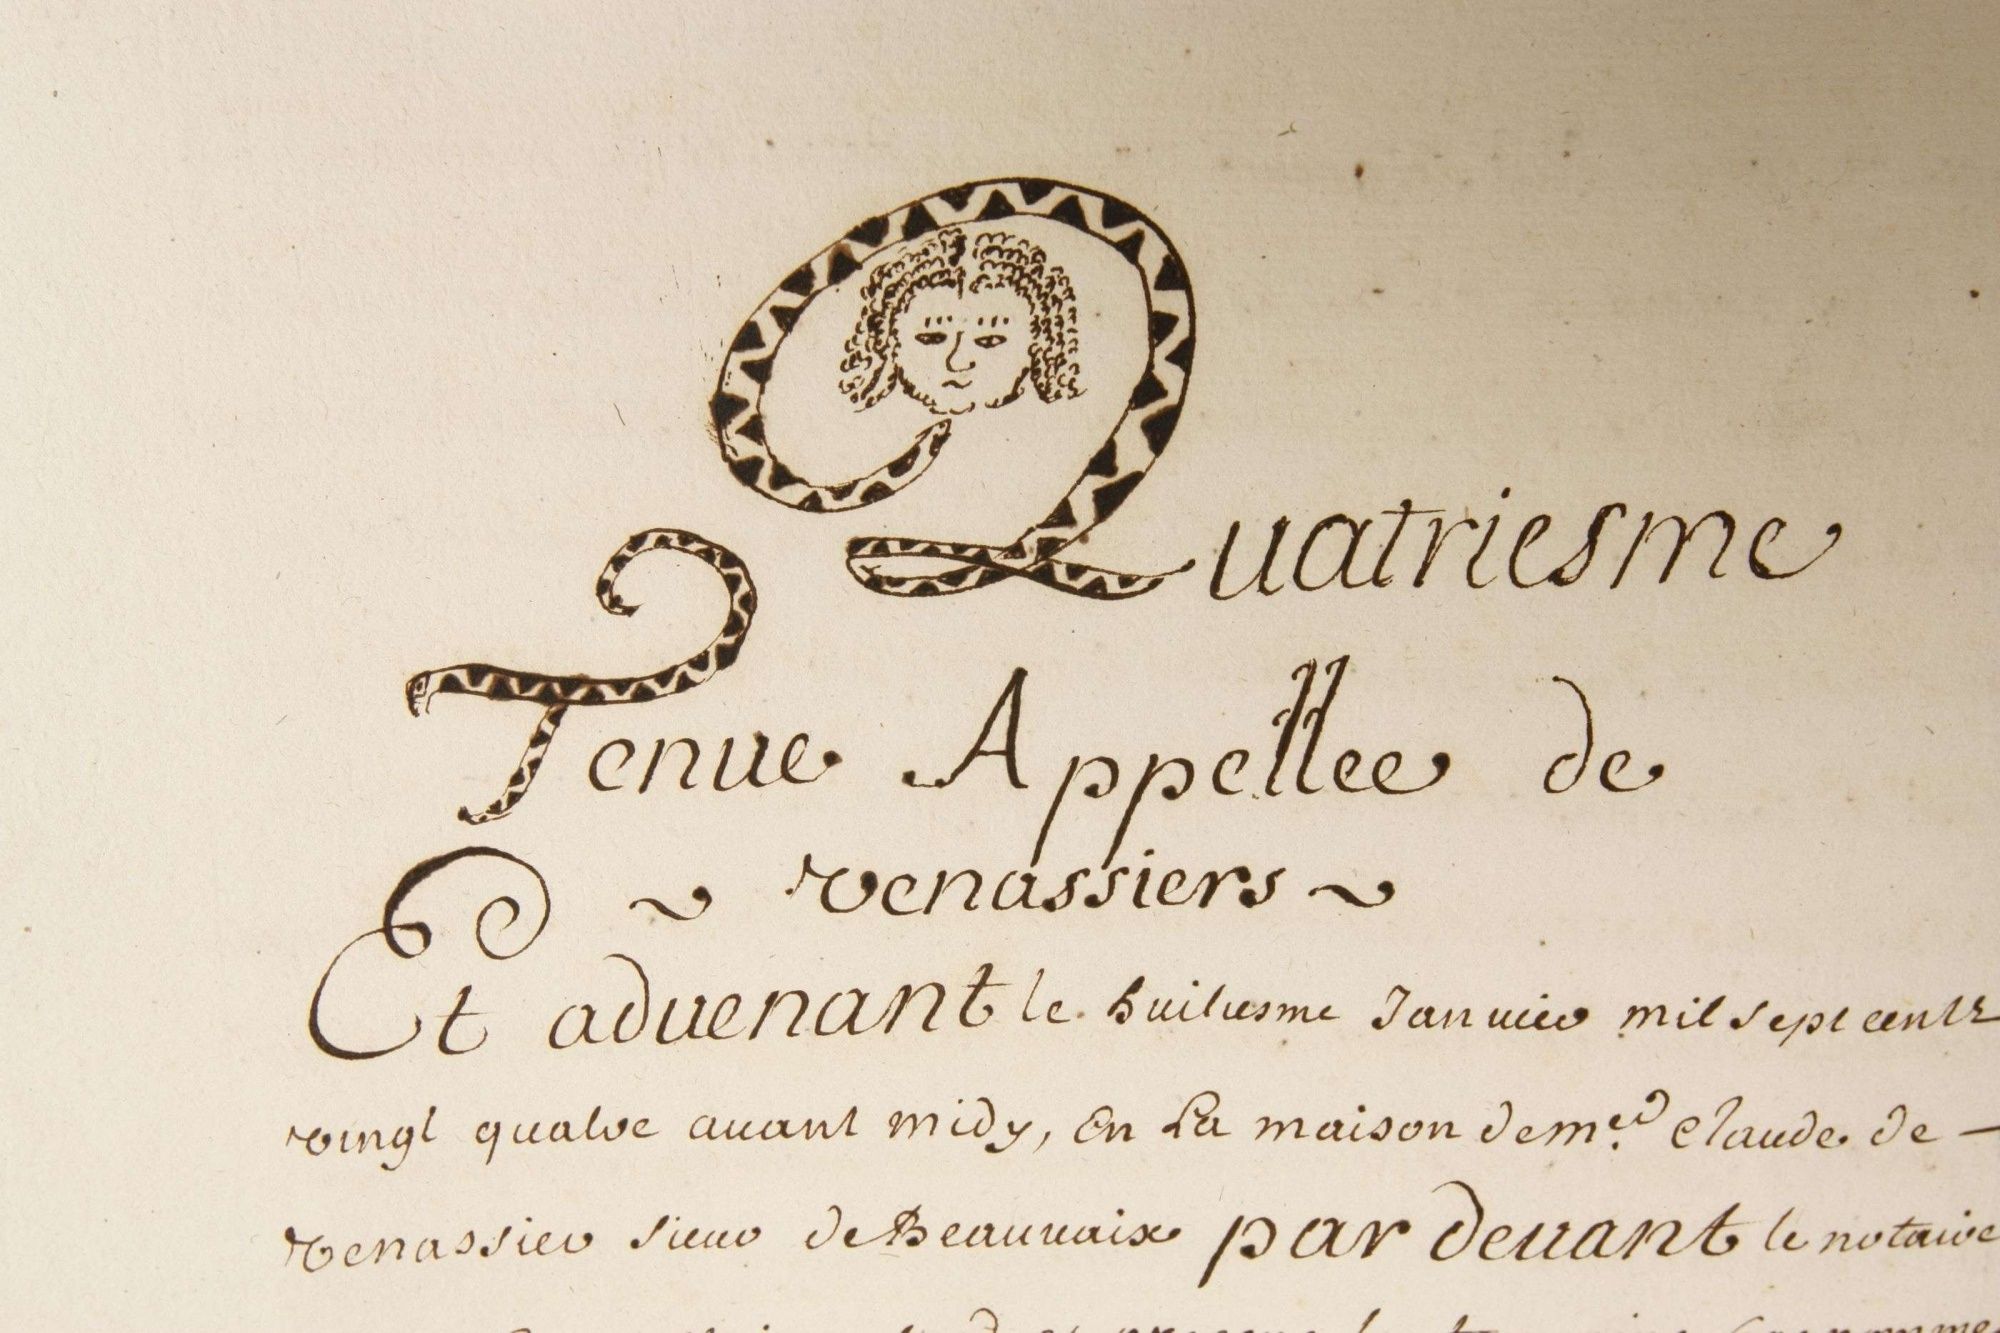 Quatriesme
Tenue Appellee de
~ Venassiers ~
Et aduenant le huitiesme Januier mil sept cents
vingt quatre auant midy, En La maison de m.e Claude de –
Venassier sieur de Beauuaix par deuant le notaire